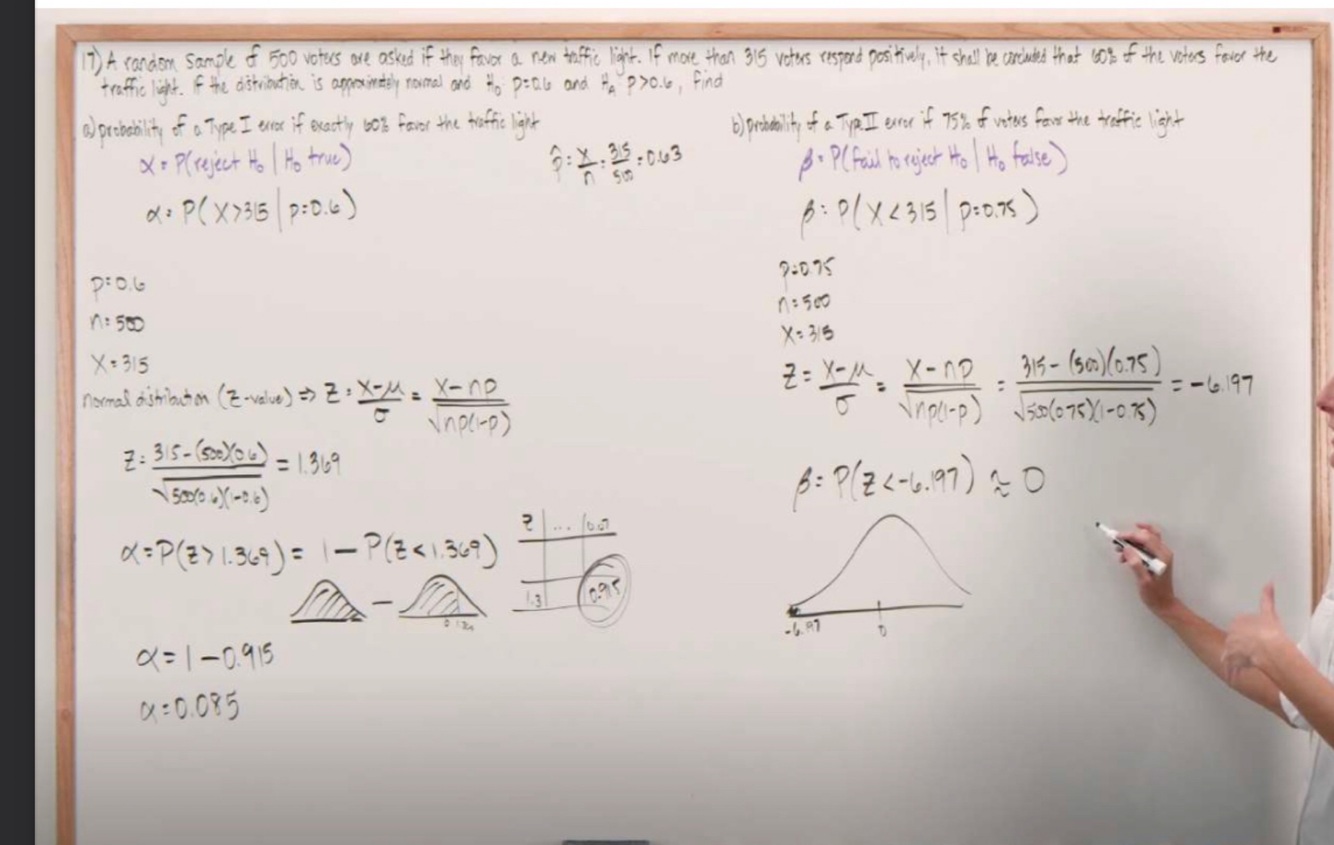 17) A random sample of 500 voters are asked if they favor a new traffic light. If more than 315 voters respond positively, it shall be concluded that 60% of the voters favor the
traffic light. If the distribution is approximately normal and H₀: p=0.6 and H_A: p>0.6, find
a) probability of a Type I error if exactly 60% favor the traffic light
α = P(reject H₀ | H₀ true)
p̂ = x/n = 315/500 = 0.63
α = P(X>315 | p=0.6)
p=0.6
n=500
X=315
normal distribution (Z-value) ⇒ Z = X-μ/σ = X-np/√np(1-p)
Z = 315-(500)(0.6)/√500(0.6)(1-0.6) = 1.369
α = P(Z>1.369) = 1 - P(Z<1.369)
Z ... 0.07
1.3 0.915
0 1.369
α = 1 - 0.915
α = 0.085
b) probability of a Type II error if 75% of voters favor the traffic light
β = P(fail to reject H₀ | H₀ false)
β = P(X<315 | p=0.75)
p=0.75
n=500
X=315
Z = X-μ/σ = X-np/√np(1-p) = 315-(500)(0.75)/√500(0.75)(1-0.75) = -6.197
β = P(Z<-6.197) ≈ 0
-6.197 0